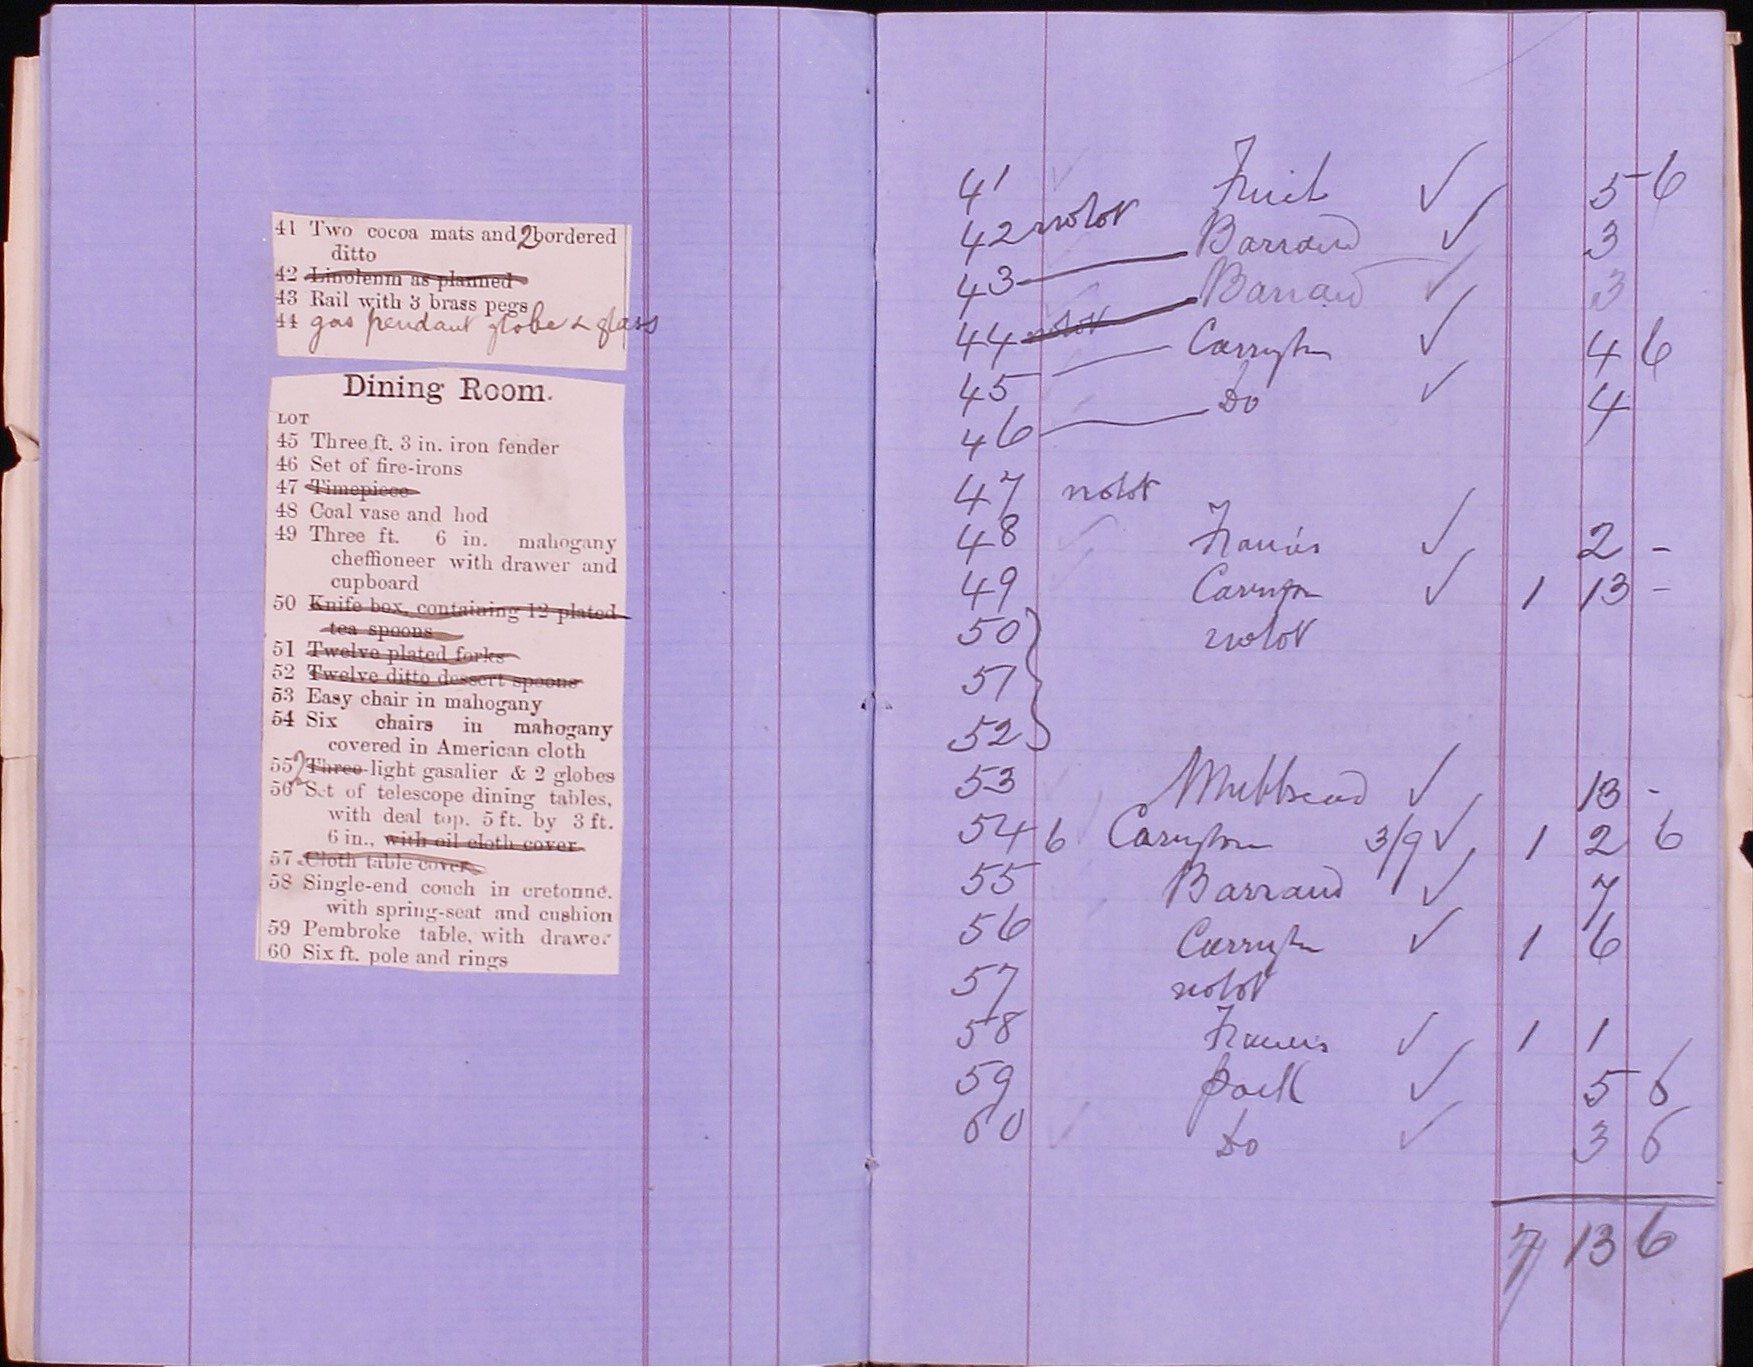 41 Two cocoa mats and 2 bordered
ditto
42 Linoleum as planned
43 Rail with 3 brass pegs
44 gas pendant globe & glass
Dining Room.
LOT
45 Three ft. 3 in. iron fender
46 Set of fire-irons
47 Timepiece
48 Coal vase and hod
49 Three ft. 6 in. mahogany
cheffioneer with drawer and
cupboard
50 Knife box, containing 12 plated
tea spoons
51 Twelve plated forks
52 Twelve ditto dessert spoons
53 Easy chair in mahogany
54 Six chairs in mahogany
covered in American cloth
55 2 Three light gasalier & 2 globes
56 Set of telescope dining tables,
with deal top. 5 ft. by 3 ft.
6 in., with oil cloth cover
57 Cloth table cover
58 Single-end couch in cretonne.
with spring-seat and cushion
59 Pembroke table, with drawer
60 Six ft. pole and rings
41 ✓ 5 6
42 no lot Barraud ✓ 3
43 Barraud ✓ 3
44 no lot Carrington ✓ 4 6
45 Do ✓ 4
46
47 no lot
48 Francis ✓ 2 -
49 Carrington ✓ 1 13 -
50 no lot
51
52
53 ✓ 13 -
54 6 Carrington 3/9 ✓ 1 2 6
55 Barraud ✓ 7
56 Carrington ✓ 1 6
57 no lot
58 Francis ✓ 1 1
59 ✓ 5 6
60 Do ✓ 3 6
7 13 6